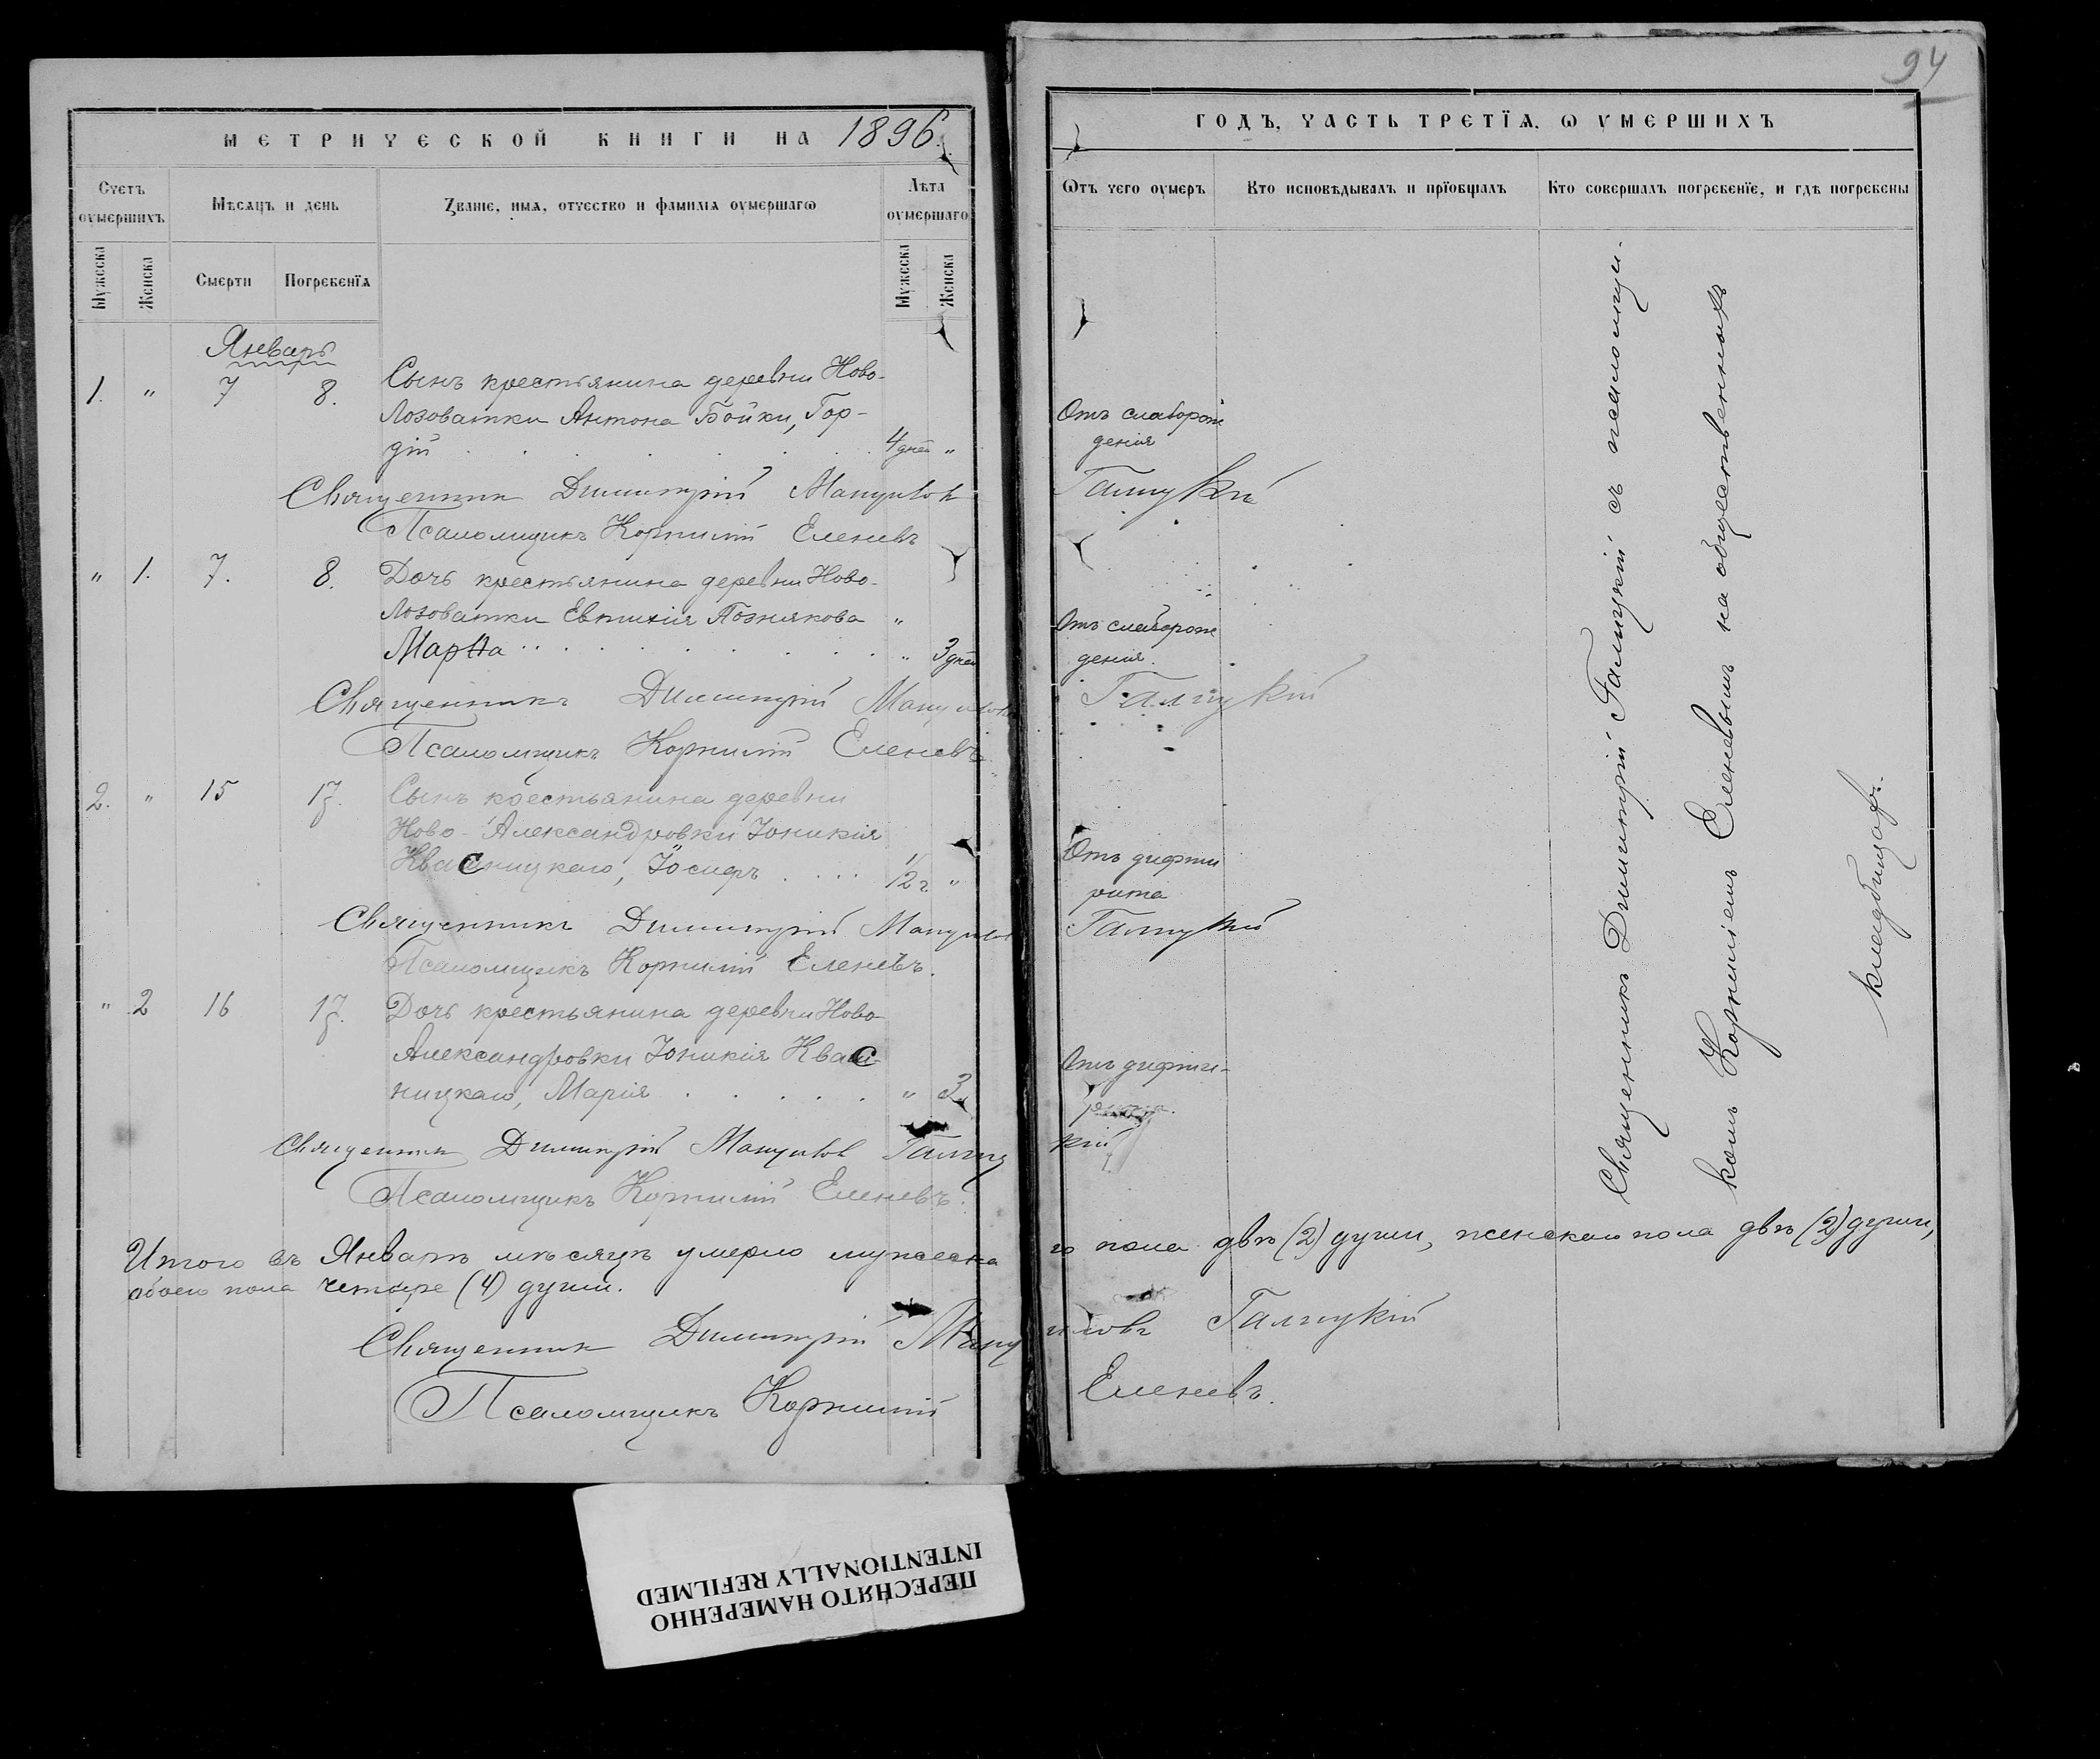 94
МЕТРИЧЕСКОЙ КНИГИ НА 1896
ГОДЪ, ЧАСТЬ ТРЕТЇѦ, Ѡ УМЕРШИХЪ
Счетъ оумершихъ
Мѣсяцъ и день
Званіе, имя, отчество и фамилія оумершагѡ
Лѣта оумершаго
Ѿтъ чего оумеръ
Кто исповѣдывалъ и прїобщалъ
Кто совершалъ погребенїе, и гдѣ погребены
Мужеска
Женска
Смерти
Погребенїя
Мужеска
Женска
Январь
1. " 7 8. Сынъ крестьянина деревни Ново-
Лозоватки Антона Бойки, Гор-
дій 4 дней "
Отъ слаборож
денія
Священникъ Димитрій Мануиловъ Галицкій
Псаломщикъ Корнилій Еленевъ
" 1. 7. 8. Дочь крестьянина деревни Ново-
Лозоватки Евтихія Познякова "
Марѳа " 3 дней
Отъ слаборож
денія.
Священникъ Димитрій Мануиловъ Галицкій
Псаломщикъ Корнилій Еленевъ
2. " 15 17. Сынъ крестьянина деревни
Ново-Александровки Іоникія
Квасницкаго, Іосифъ 1/2 г. "
Отъ дифти
рита
Священникъ Димитрій Мануилов Галицкій
Псаломщикъ Корнилій Еленевъ.
" 2 16 17. Дочь крестьянина деревни Ново-
Александровки Іоникія Квас-
ницкаго, Марія " 3
Отъ дифти-
рита.
Священникъ Димитрій Мануилов Галицкій
Псаломщикъ Корнилій Еленевъ.
Священникъ Димитрій Галицкій съ псаломщи-
комъ Корниліемъ Еленевымъ на общественномъ
кладбищѣ.
Итого въ Январѣ мѣсяцѣ умерло мужеска
го пола двѣ (2) души, женскаго пола двѣ (2) души,
обоего пола четыре (4) души.
Священникъ Димитрій Мануиловъ Галицкій
Псаломщикъ Корнилій Еленевъ.
ПЕРЕСНЯТО НАМЕРЕННО
INTENTIONALLY REFILMED